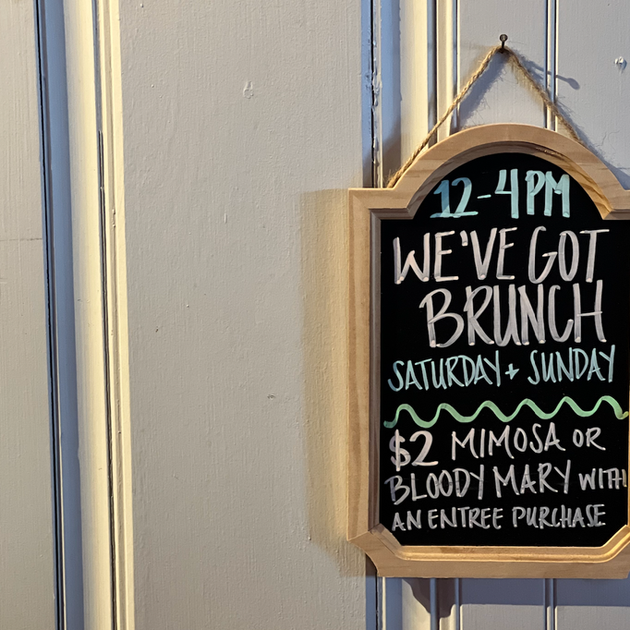 12-4PM
WE'VE GOT
BRUNCH
SATURDAY + SUNDAY
$2 MIMOSA OR
BLOODY MARY WITH
AN ENTREE PURCHASE